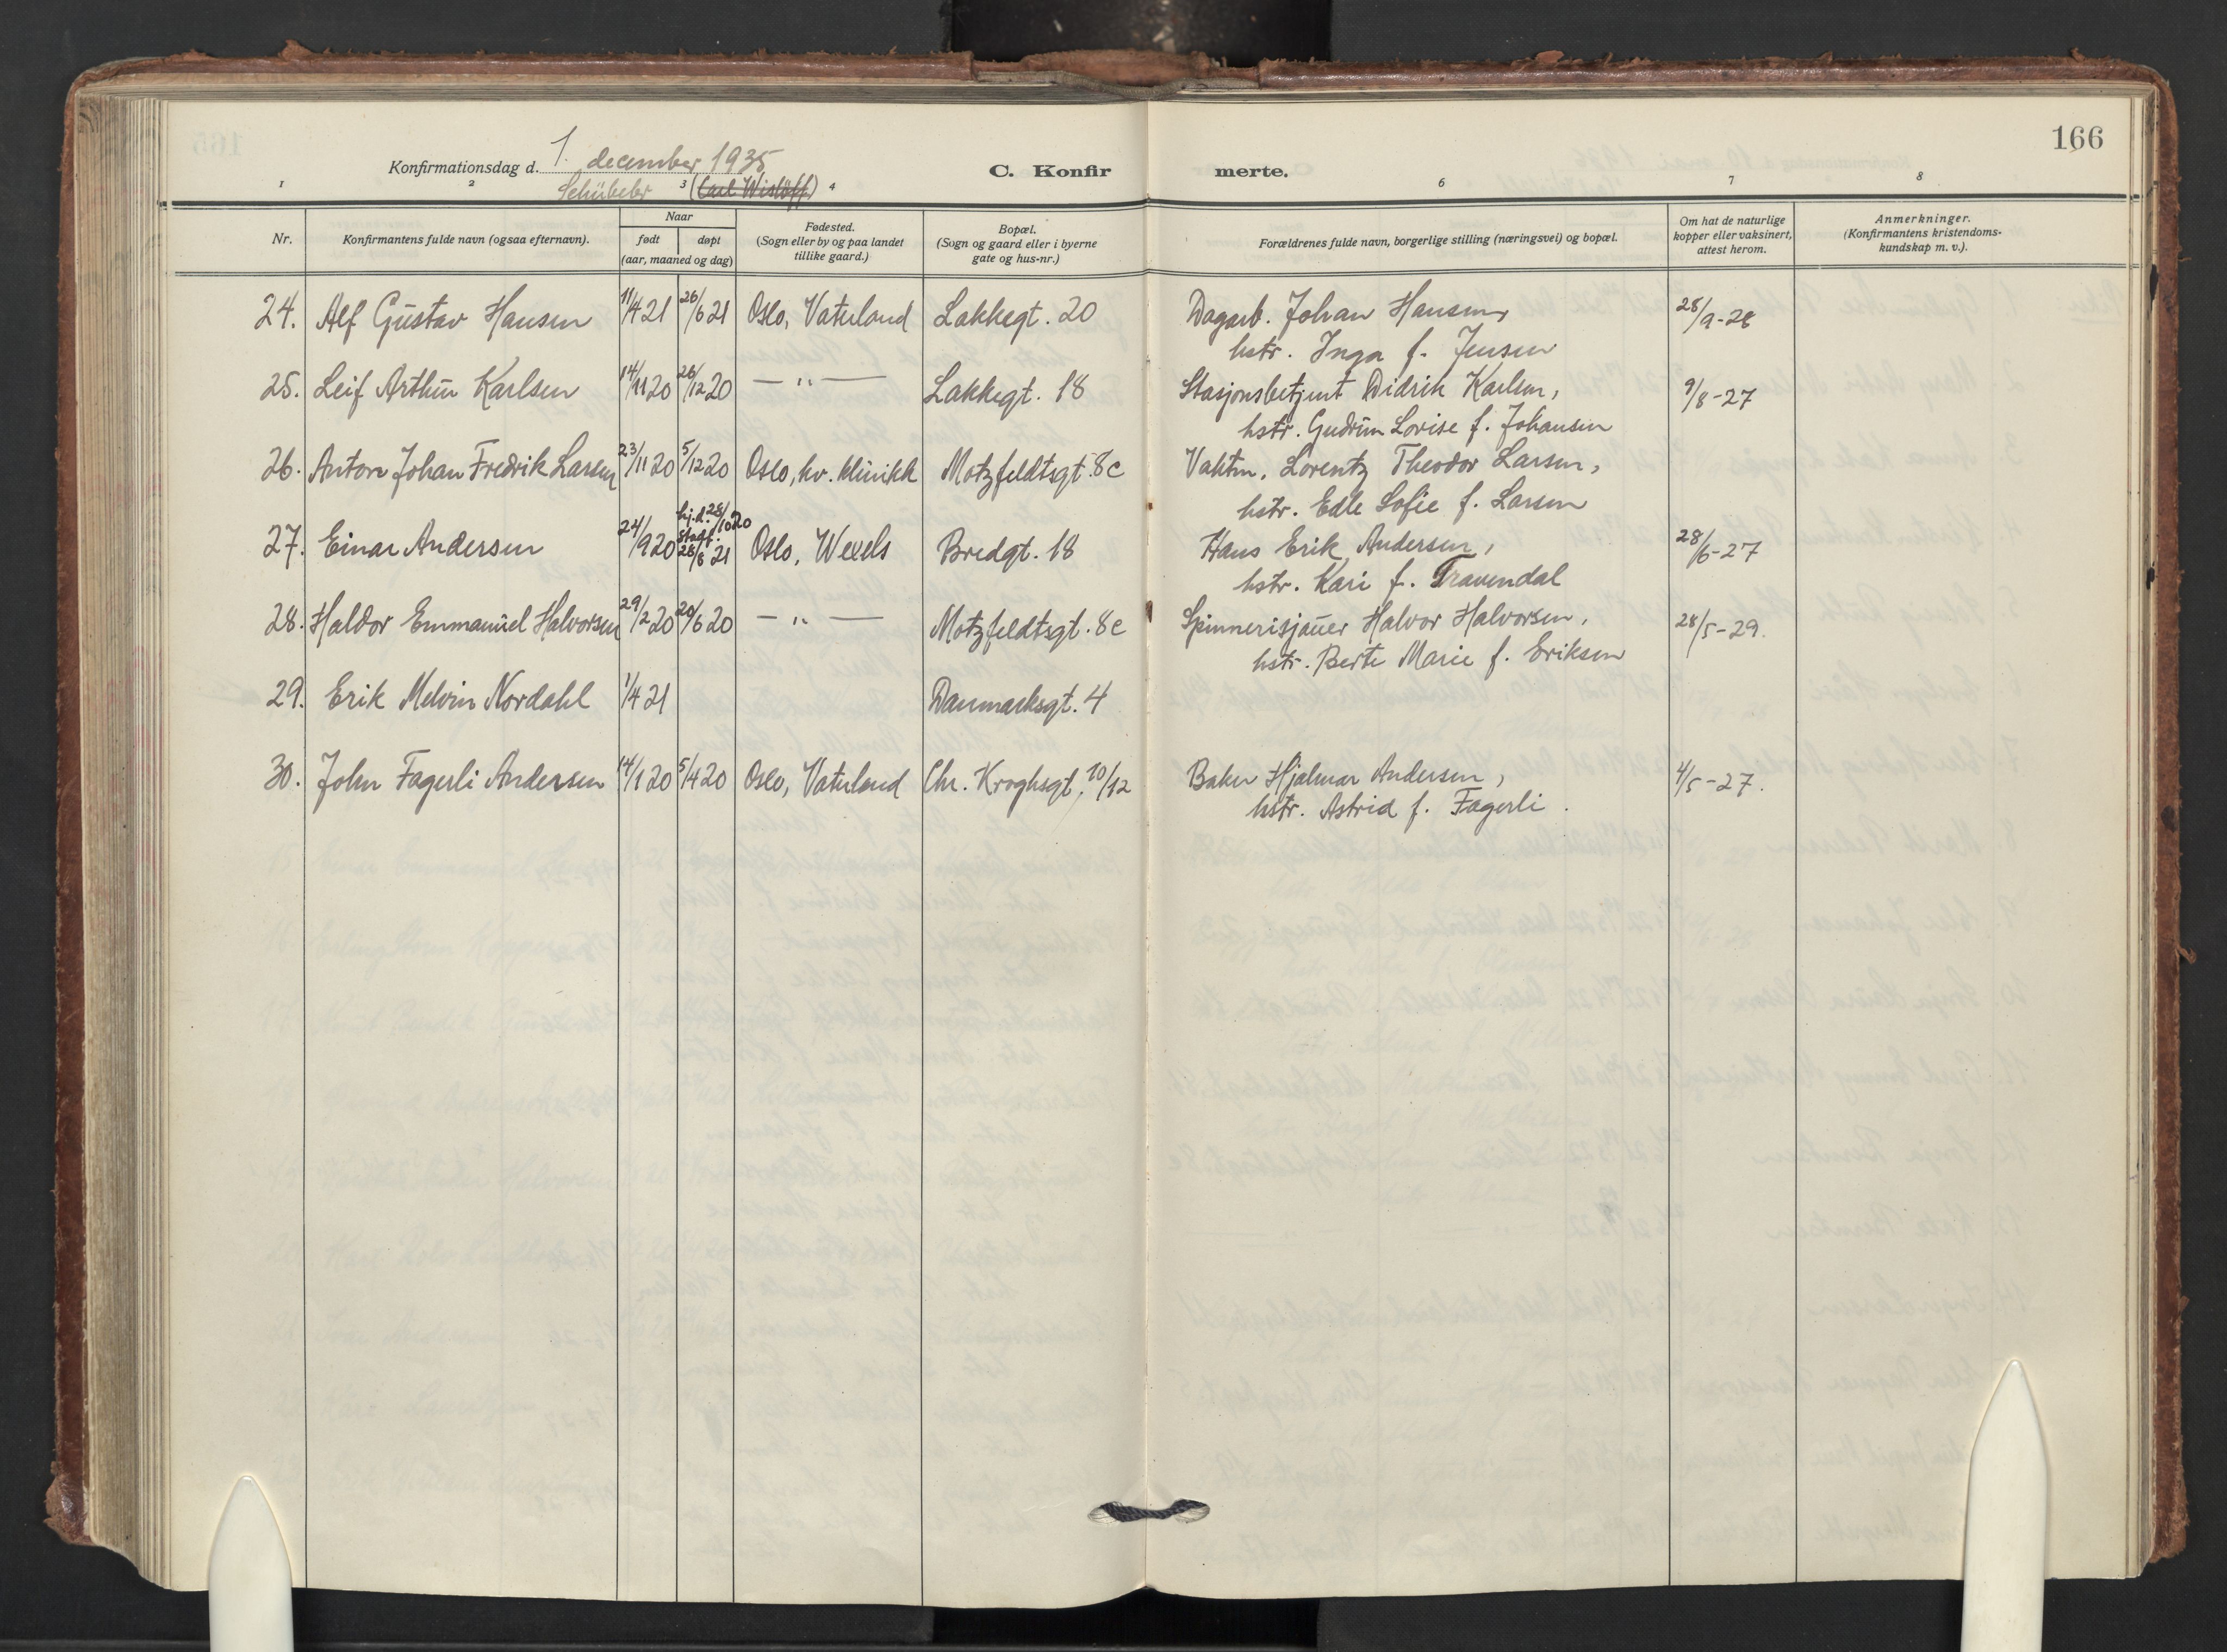 166
Konfirmationsdag d. 1. december 1935
C. Konfirmerte.
Schübeler (Carl Wislöff)
1 2 3 4 6 7 8
Nr.
Konfirmantens fulde navn (ogsaa efternavn).
Naar
født
døpt
(aar, maaned og dag)
Fødested.
(Sogn eller by og paa landet
tillike gaard.)
Bopæl.
(Sogn og gaard eller i byerne
gate og hus-nr.)
Forældrenes fulde navn, borgerlige stilling (næringsvei) og bopæl.
Om hat de naturlige
kopper eller vaksinert,
attest herom.
Anmerkninger.
(Konfirmantens kristendoms-
kundskap m. v.).
24. Alf Gustav Hansen 11/4 21 26/6 21 Oslo, Vaterland Lakkegt. 20 Dagarb. Johan Hansen, 28/9-28
hstr. Inga f. Jensen
25. Leif Arthur Karlsen 14/11 20 26/12 20 — " — Lakkegt. 18 Stasjonsbetjent Didrik Karlsen, 9/8-27
hstr. Gudrun Lovise f. Johansen
26. Anton Johan Fredrik Larsen 23/11 20 5/12 20 Oslo, kv. klinikk Motzfeldtsgt. 8c Vaktm. Lorentz Theodor Larsen,
hstr. Edle Sofie f. Larsen
hj.d. 28/10 20
stadf.
27. Einar Andersen 24/9 20 28/8 21 Oslo, Wexels Bredgt. 18 Hans Erik Andersen, 28/6-27
hstr. Kari f. Travendal
28. Haldor Emmanuel Halvorsen 29/2 20 20/6 20 — " — Motzfeldtsgt. 8c Spinnerisjauer Halvor Halvorsen, 28/5-29.
hstr. Berte Marie f. Eriksen
29. Erik Melvin Nordahl 1/4 21 Danmarksgt. 4
30. John Fagerli Andersen 14/1 20 5/4 20 Oslo, Vaterland Chr. Kroghsgt. 10/12 Baker Hjalmar Andersen, 4/5-27.
hstr. Astrid f. Fagerli.